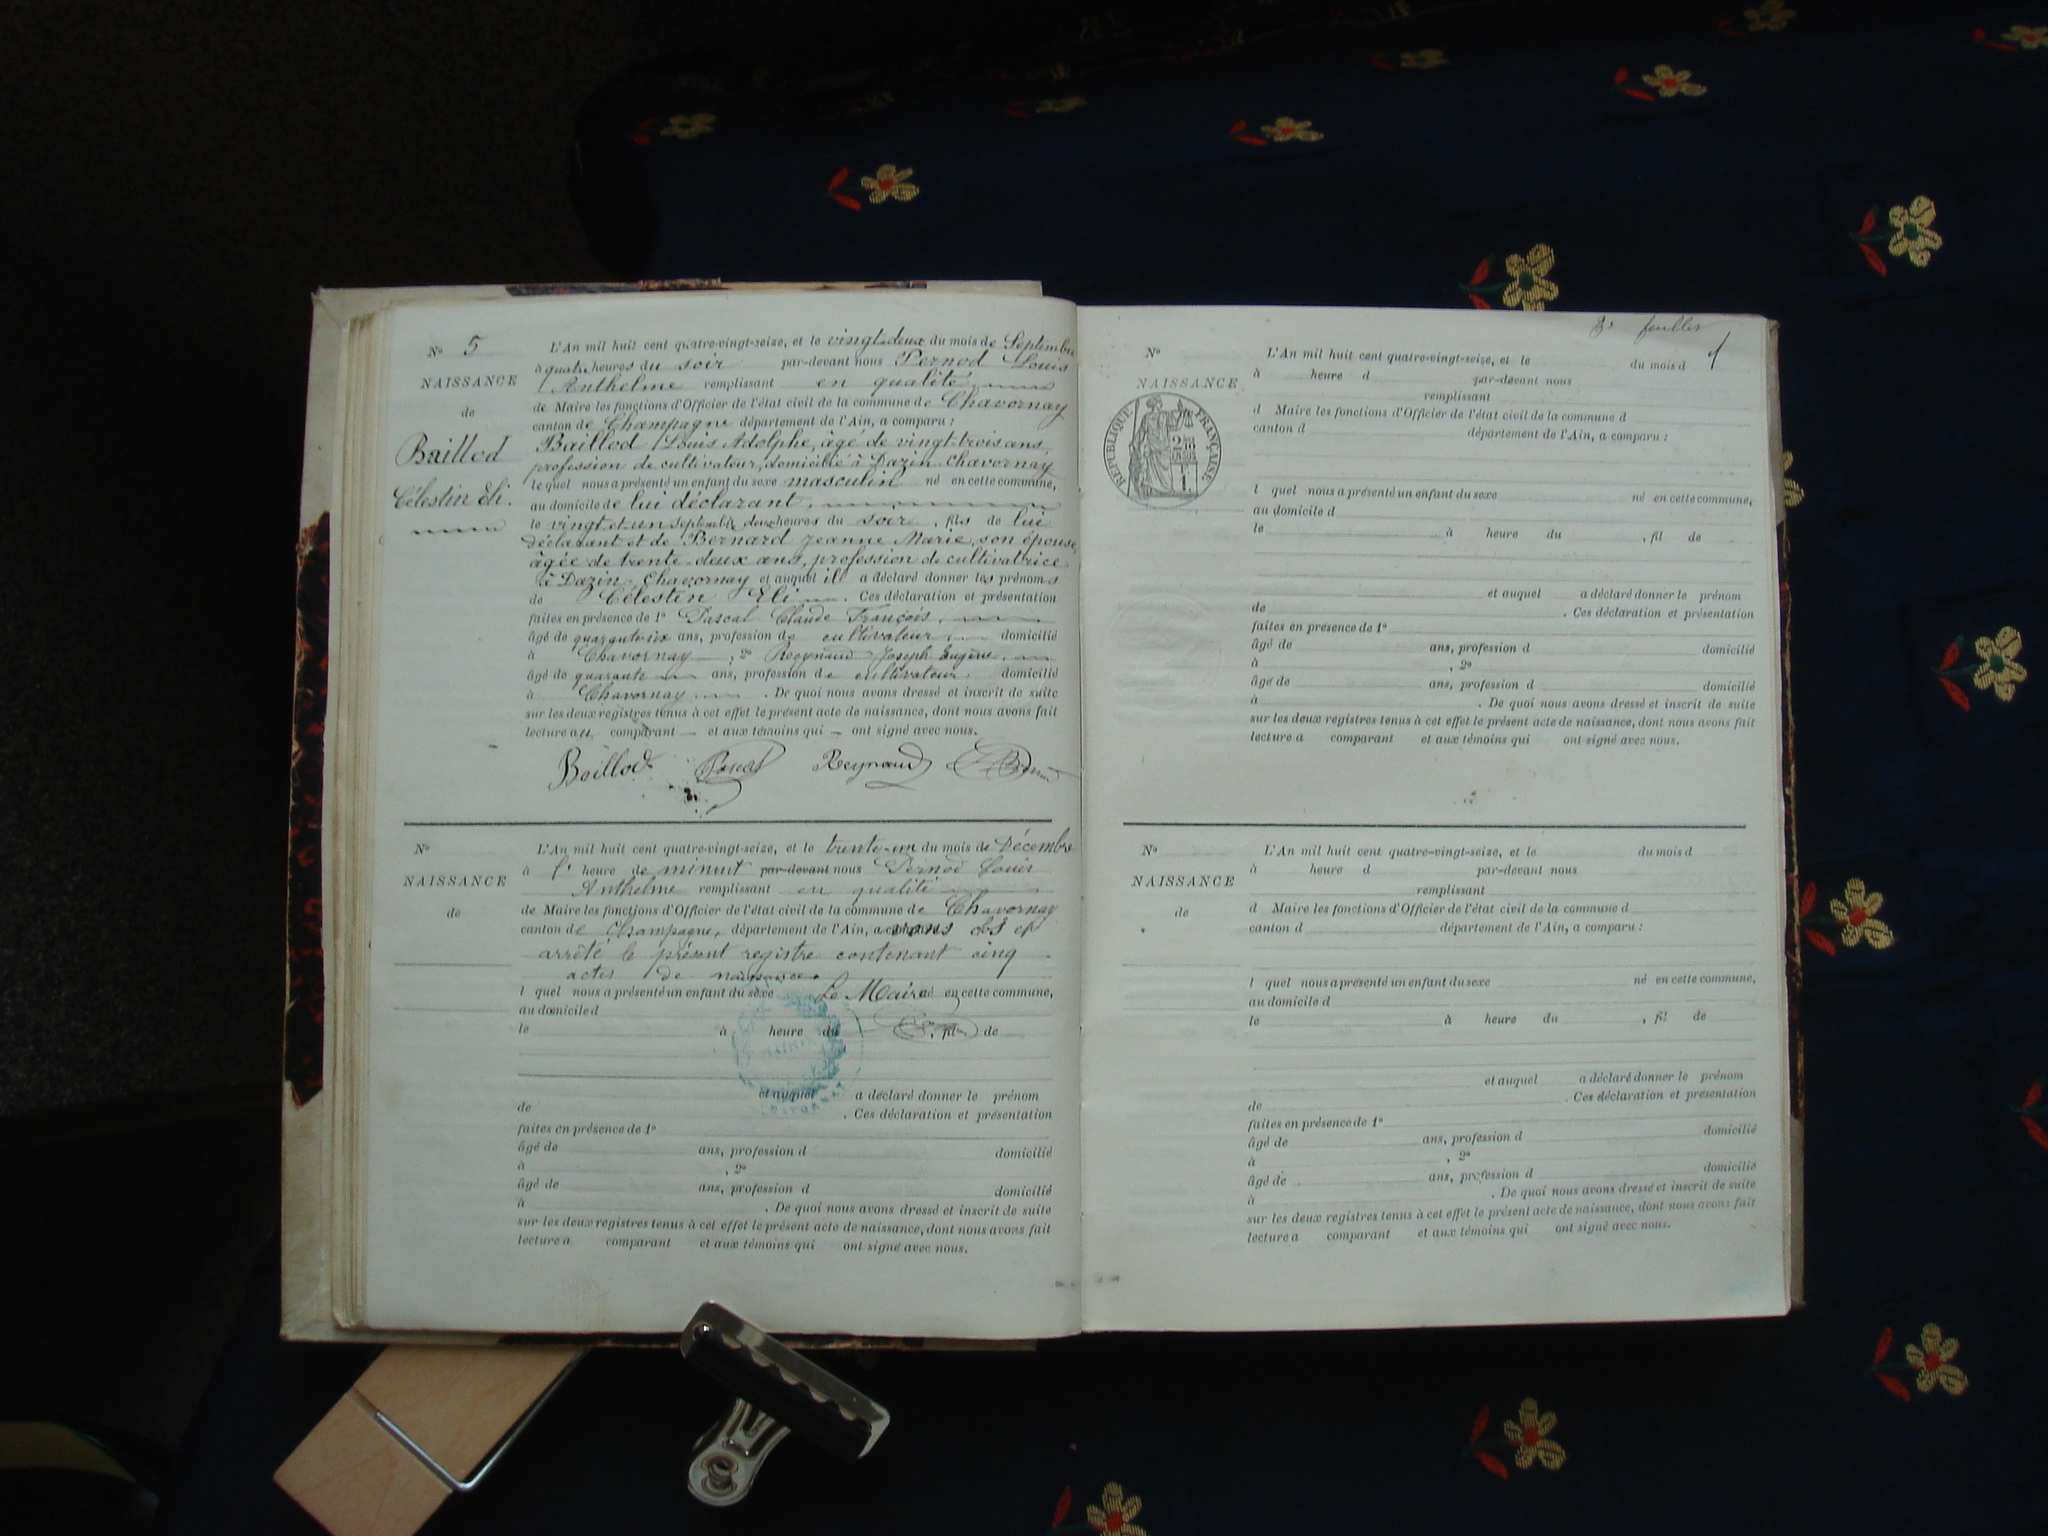 N° 5
NAISSANCE
de
Baillod
Célestin Eli.
L'An mil huit cent quatre-vingt-seize, et le vingt-deux du mois de Septembre
à quatre heures du soir par-devant nous Pernod Louis
Anthelme remplissant en qualité
de Maire les fonctions d'Officier de l'état civil de la commune de Chavornay
canton de Champagne département de l'Ain, a comparu :
Baillod Louis Adolphe, âgé de vingt-trois ans,
profession de cultivateur, domicilié à Dazin-Chavornay
le quel nous a présenté un enfant du sexe masculin né en cette commune,
au domicile de lui déclarant,
le vingt et un septembre deux heures du soir, fils de lui
déclarant et de Bernard Jeanne Marie, son épouse,
âgée de trente-deux ans, profession de cultivatrice
à Dazin-Chavornay et auquel il a déclaré donner les prénoms
de Célestin Eli. Ces déclaration et présentation
faites en présence de 1° Pascal Claude François,
âgé de ans, profession de cultivateur domicilié
à Chavornay, 2° Reynaud Joseph Eugène,
âgé de quarante ans, profession de cultivateur domicilié
à Chavornay. De quoi nous avons dressé et inscrit de suite
sur les deux registres tenus à cet effet le présent acte de naissance, dont nous avons fait
lecture au comparant — et aux témoins qui — ont signé avec nous.
Baillod Pascal Reynaud
N°
NAISSANCE
de
L'An mil huit cent quatre-vingt-seize, et le trente-un du mois de Décembre
à l' heure de minuit par-devant nous Pernod Louis
Anthelme remplissant en qualité
de Maire les fonctions d'Officier de l'état civil de la commune de Chavornay
canton de Champagne, département de l'Ain, avons clos et
arrêté le présent registre contenant cinq
actes de naissances.
l quel nous a présenté un enfant du sexe Le Maire né en cette commune,
au domicile d
le à heure du , fil de
et auquel a déclaré donner le prénom
de . Ces déclaration et présentation
faites en présence de 1°
âgé de ans, profession d domicilié
à , 2°
âgé de ans, profession d domicilié
à . De quoi nous avons dressé et inscrit de suite
sur les deux registres tenus à cet effet le présent acte de naissance, dont nous avons fait
lecture a comparant et aux témoins qui ont signé avec nous.
feuillet
N°
NAISSANCE
RÉPUBLIQUE FRANÇAISE
L'An mil huit cent quatre-vingt-seize, et le du mois d
à heure d par-devant nous
remplissant
d Maire les fonctions d'Officier de l'état civil de la commune d
canton d département de l'Ain, a comparu :
l quel nous a présenté un enfant du sexe né en cette commune,
au domicile d
le à heure du , fil de
et auquel a déclaré donner le prénom
de . Ces déclaration et présentation
faites en présence de 1°
âgé de ans, profession d domicilié
à , 2°
âgé de ans, profession d domicilié
à . De quoi nous avons dressé et inscrit de suite
sur les deux registres tenus à cet effet le présent acte de naissance, dont nous avons fait
lecture a comparant et aux témoins qui ont signé avec nous.
N°
NAISSANCE
de
L'An mil huit cent quatre-vingt-seize, et le du mois d
à heure d par-devant nous
remplissant
d Maire les fonctions d'Officier de l'état civil de la commune d
canton d département de l'Ain, a comparu :
l quel nous a présenté un enfant du sexe né en cette commune,
au domicile d
le à heure du , fil de
et auquel a déclaré donner le prénom
de . Ces déclaration et présentation
faites en présence de 1°
âgé de ans, profession d domicilié
à , 2°
âgé de ans, profession d domicilié
à . De quoi nous avons dressé et inscrit de suite
sur les deux registres tenus à cet effet le présent acte de naissance, dont nous avons fait
lecture a comparant et aux témoins qui ont signé avec nous.